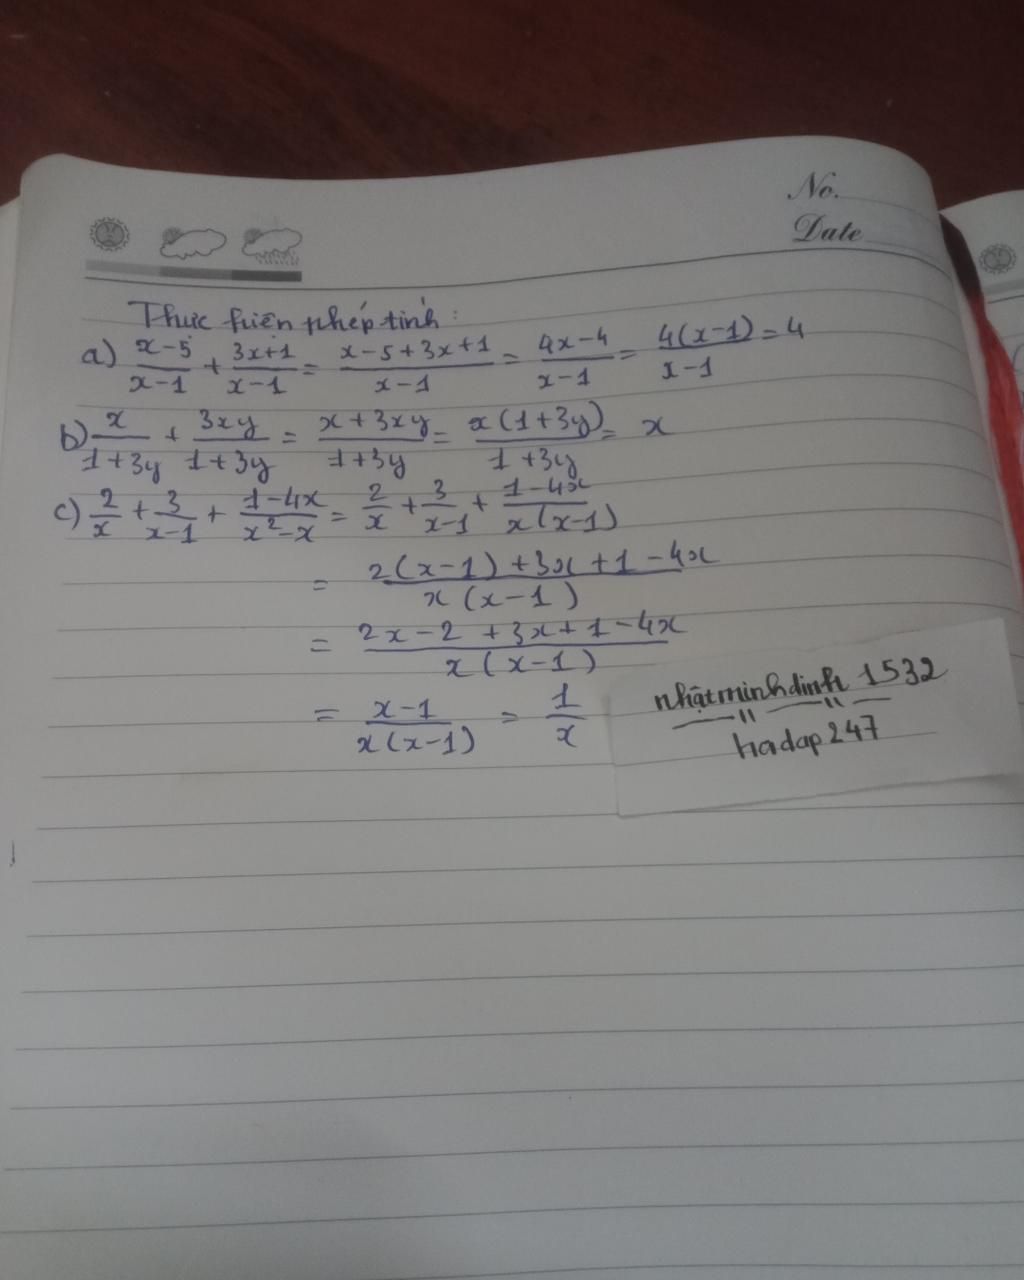 No.
Date
Thực hiện phép tính:
a) \frac{x-5}{x-1} + \frac{3x+1}{x-1} = \frac{x-5+3x+1}{x-1} = \frac{4x-4}{x-1} = \frac{4(x-1)}{x-1} = 4
b) \frac{x}{1+3y} + \frac{3xy}{1+3y} = \frac{x+3xy}{1+3y} = \frac{x(1+3y)}{1+3y} = x
c) \frac{2}{x} + \frac{3}{x-1} + \frac{1-4x}{x^2-x} = \frac{2}{x} + \frac{3}{x-1} + \frac{1-4x}{x(x-1)}
= \frac{2(x-1)+3x+1-4x}{x(x-1)}
= \frac{2x-2+3x+1-4x}{x(x-1)}
= \frac{x-1}{x(x-1)} = \frac{1}{x}
nhậtminhdinh 1532
hadap 247